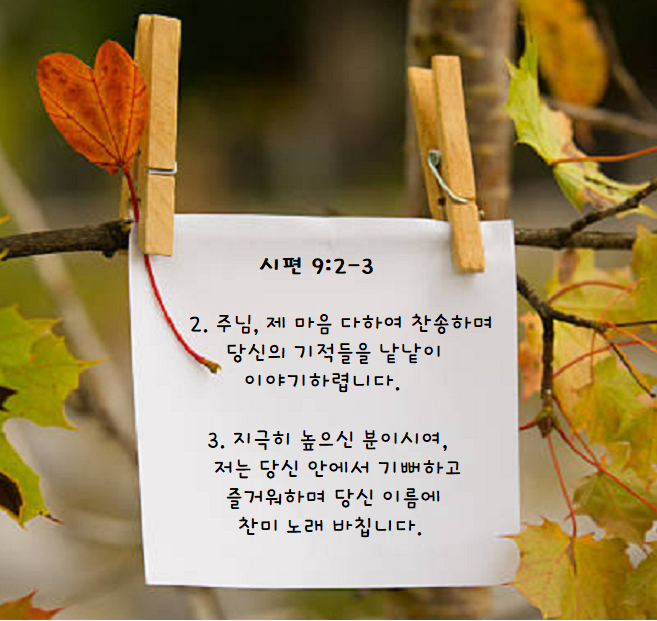 시편 9:2-3
2. 주님, 제 마음 다하여 찬송하며
당신의 기적들을 낱낱이
이야기하렵니다.
3. 지극히 높으신 분이시여,
저는 당신 안에서 기뻐하고
즐거워하며 당신 이름에
찬미 노래 바칩니다.